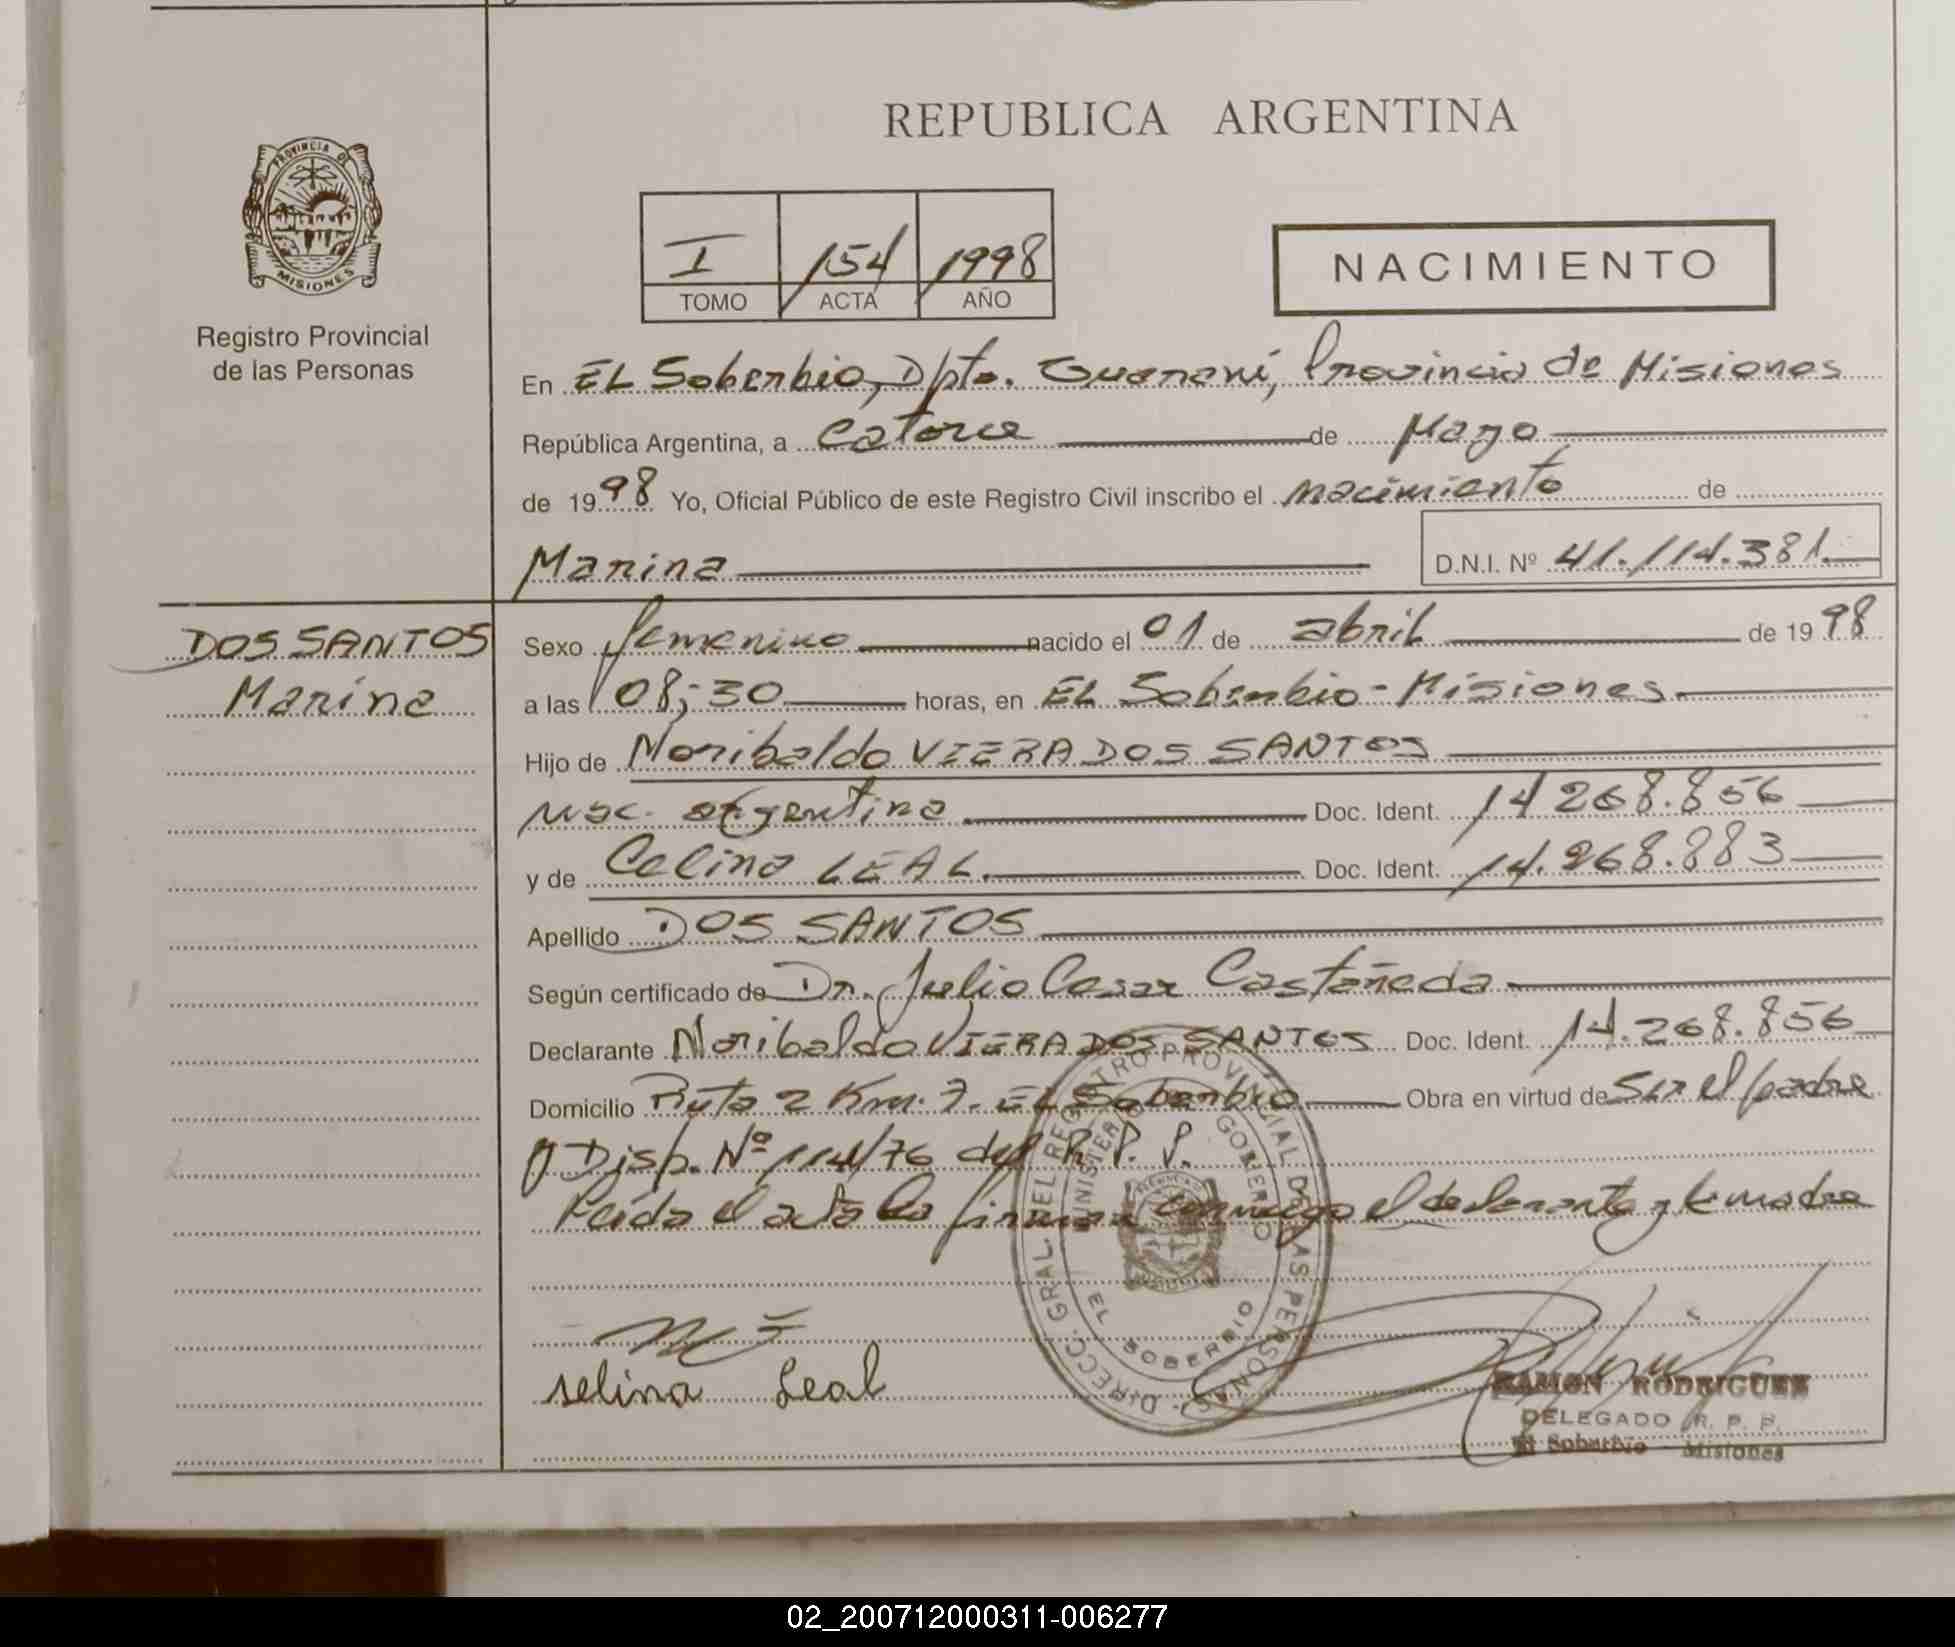 REPUBLICA ARGENTINA
PROVINCIA DE
MISIONES
Registro Provincial
de las Personas
I 154 1998
TOMO ACTA AÑO
NACIMIENTO
En EL Soberbio, Dpto. Guaraní, Provincia de Misiones
República Argentina, a catorce de Mayo
de 1998 Yo, Oficial Público de este Registro Civil inscribo el nacimiento de
Marina D.N.I. Nº 41.114.381.
DOS SANTOS
Marina
Sexo femenino nacido el 01 de abril de 1998
a las 08;30 horas, en EL Soberbio - Misiones.
Hijo de Noribaldo VIERA DOS SANTOS
nac. argentina Doc. Ident. 14 268.856
y de Celina LEAL. Doc. Ident. 14.268.883
Apellido DOS SANTOS
Según certificado de Dr. Julio Cesar Castañeda
Declarante Noribaldo VIERA DOS SANTOS Doc. Ident. 14.268.856
Domicilio Ruta 2 Km. 7. EL Soberbio Obra en virtud de ser el padre
y Disp. Nº 114/76 del R. P. P.
Leida el acta la firman conmigo el declarante y la madre
DIRECC. GRAL. DEL REGISTRO PROVINCIAL DE LAS PERSONAS
MINISTERIO GOBIERNO
EL SOBERBIO
selina Leal
RAMON RODRIGUEZ
DELEGADO R. P. P.
El Soberbio - Misiones
02_200712000311-006277